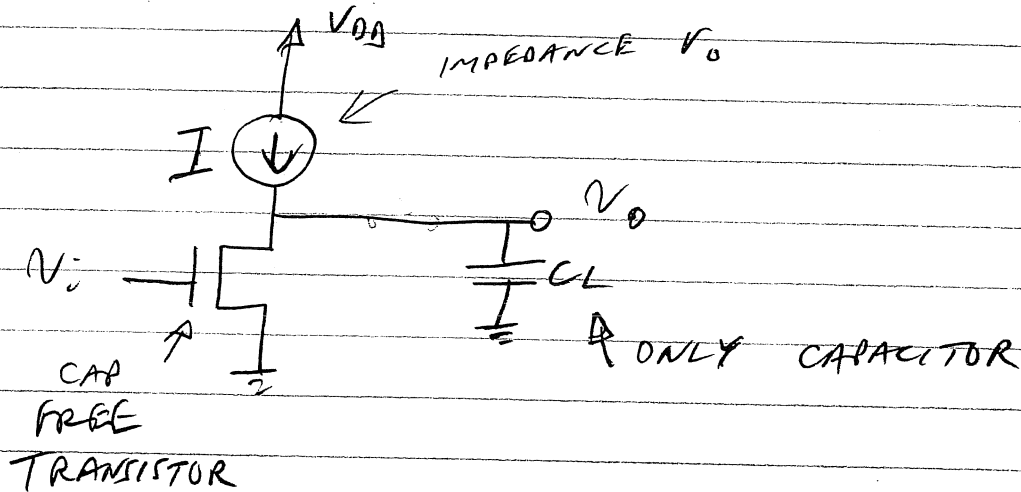 VDD
IMPEDANCE ro
I
vo
vi
CL
ONLY CAPACITOR
CAP
FREE
TRANSISTOR